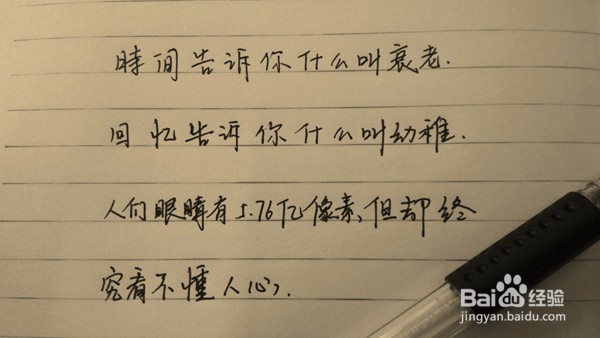 時间告诉你什么叫衰老.
回忆告诉你什么叫幼稚.
人们眼睛有5.76亿像素,但却终
究看不懂人心.
Baidu经验
jingyan.baidu.com